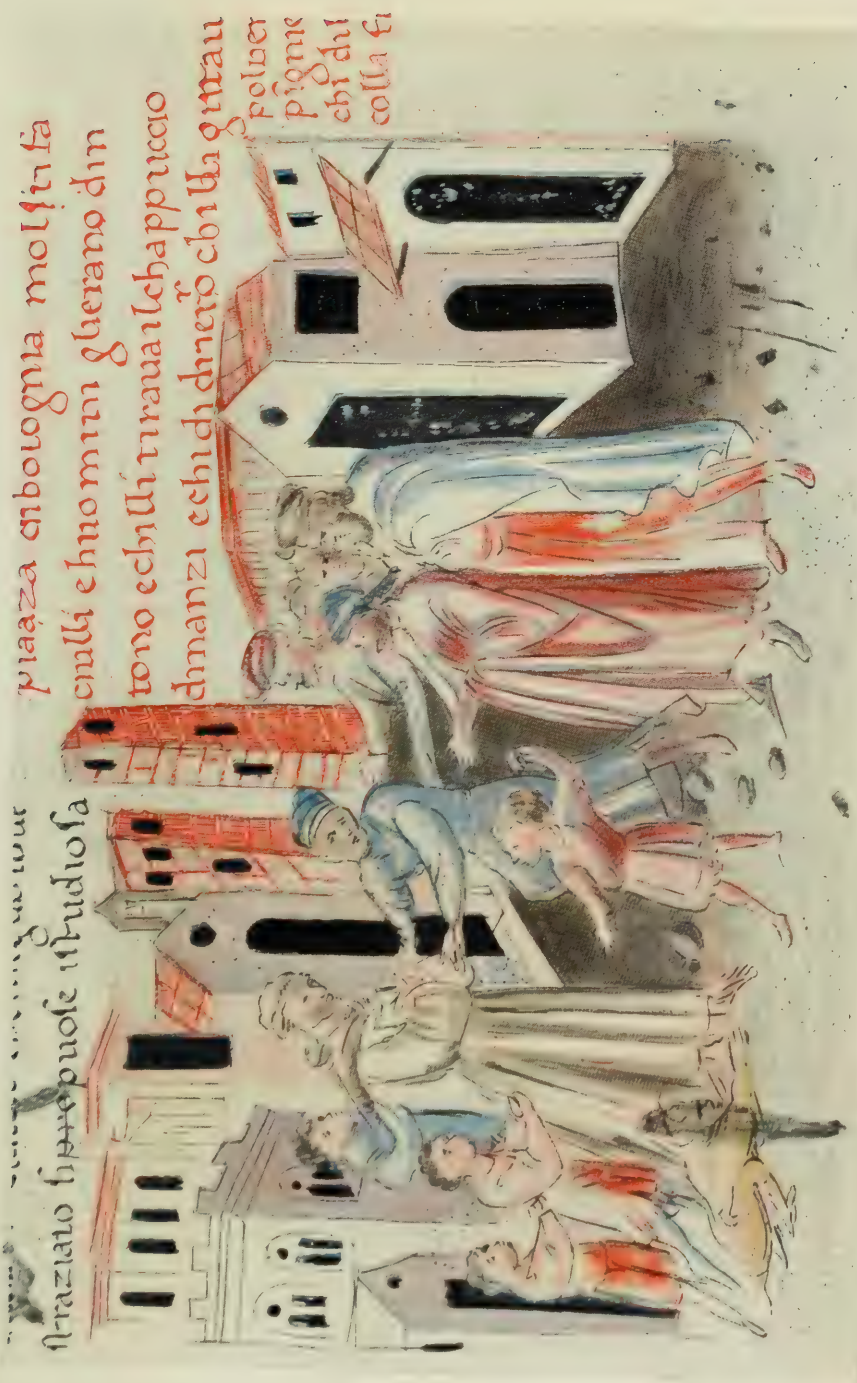 ſtraziato ſi propuoſe iſtudioſa
piaaza dibolognia moltinfa
ciulli ehuomini gherano din
tono echilli tirauailchappuccio
dinanzi echi di dinerͦ chilla gittau
poluer
pigne
chi dil
colla fi